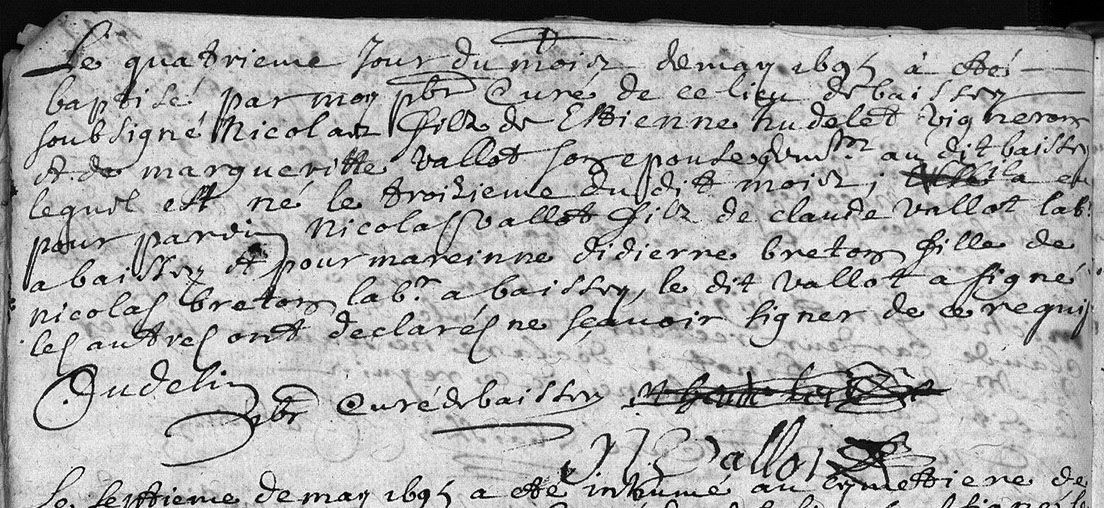 Le quatrieme Jour du mois de may 1695 à été
baptisé par moy pbr Curé de ce lieu de baissey
soubsigné Nicolas filz de Estienne hudelet vigneron
et de margueritte vallot son epouse au dit baissey
lequel est né le troisieme du dit mois; il a eu
pour parein Nicolas Vallot filz de claude vallot labr
a baissey et pour mareinne didierre breton fille de
nicolas breton labr. a baissey, le dit vallot a signé
les autres ont declarés ne sçavoir signer de ce requis
Oudelin
pbr Curé de baissey
N Vallot
le septieme de may 1695 a été inhumé au cymettiere de